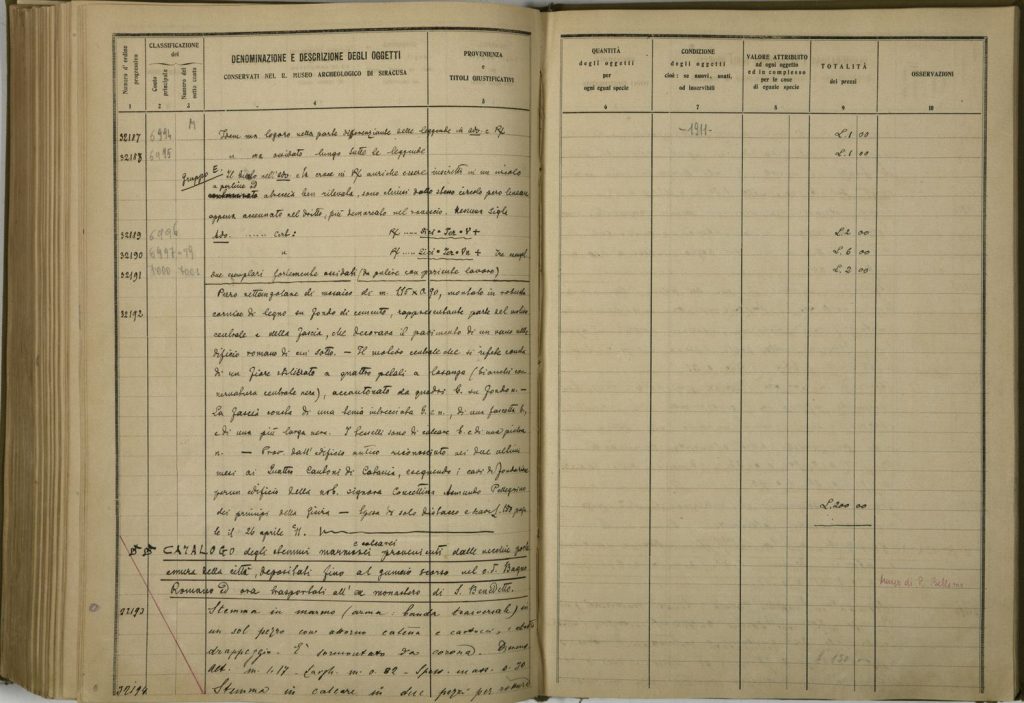 Numero d'ordine progressivo
CLASSIFICAZIONE
del
Conto principale
Numero del sotto conto
DENOMINAZIONE E DESCRIZIONE DEGLI OGGETTI
CONSERVATI NEL R. MUSEO ARCHEOLOGICO DI SIRACUSA
PROVENIENZA
e
TITOLI GIUSTIFICATIVI
1 2 3 4 5
32187 6994 M Idem ma logoro nella parte differenziante delle leggende in adv. e Rf
32188 6995 " ma ossidato lungo tutte le leggende
gruppo E. Il nell'adv. e la croce in Rf anziché essere inscritti in un circolo
a perline
oppure accennato nel dritto, più demarcato nel rovescio. Nessuna sigla
32189 6996 Adv. ..... Rf .....
32190 6997-99 " Rf .....
32191 7000 7001 due esemplari fortemente ossidati (da pulire con paziente lavoro)
Pezzo rettangolare di mosaico di m. 1.95 x 0.90, montato in robusta
32192 cornice di legno su fondo di cemento, rappresentante parte del motivo
centrale e della fascia, che decorava il pavimento di un vano
dificio romano di cui sotto. — Il motivo centrale del si ripete consta
di un fiore stilizzato a quattro petali a losanga (bianchi con
nervatura centrale nera), accantonato da quadri b. su fondo n. —
La fascia consta di una intrecciata b. e n., di una fascetta b.
e di una più larga nera. I tasselli sono di calcare b. e di pietra
n. — Prov. dall'edificio antico riconosciuto nei due ultimi
mesi ai Quattro Cantoni di Catania, eseguendo i cavi di fondazione
per un edificio della nob. signora Concettina Asmundo Pellegrino
dei principi della — Spesa di solo distacco e L. 150
le il 26 aprile 911.
e calcarei
CATALOGO degli stemmi marmorei provenienti dalle vecchie porte
e mura della città, depositati fino al gennaio scorso nel c.d. Bagno
Romano ed ora trasportati all'ex monastero di S. Benedetto.
32193 Stemma in marmo (arma: banda trasversale) in
un sol pezzo con attorno catena e cartocci,
drappeggio. E' sormontato da corona. Dimens.
Alt. m. 1.17 - Largh. m. 0.82 - Spess. mass. 0.30
32194 Stemma in calcare in due pezzi per
QUANTITÀ
degli oggetti
per
ogni egual specie
CONDIZIONE
degli oggetti
cioè: se nuovi, usati,
od inservibili
VALORE ATTRIBUITO
ad ogni oggetto
ed in complesso
per le cose
di eguale specie
TOTALITÀ
dei prezzi
OSSERVAZIONI
6 7 8 9 10
-1911-
L. 1 00
L. 1 00
L. 2 00
L. 6 00
L. 2 00
L. 200 00
Museo di P. Bellomo
L. 150 00